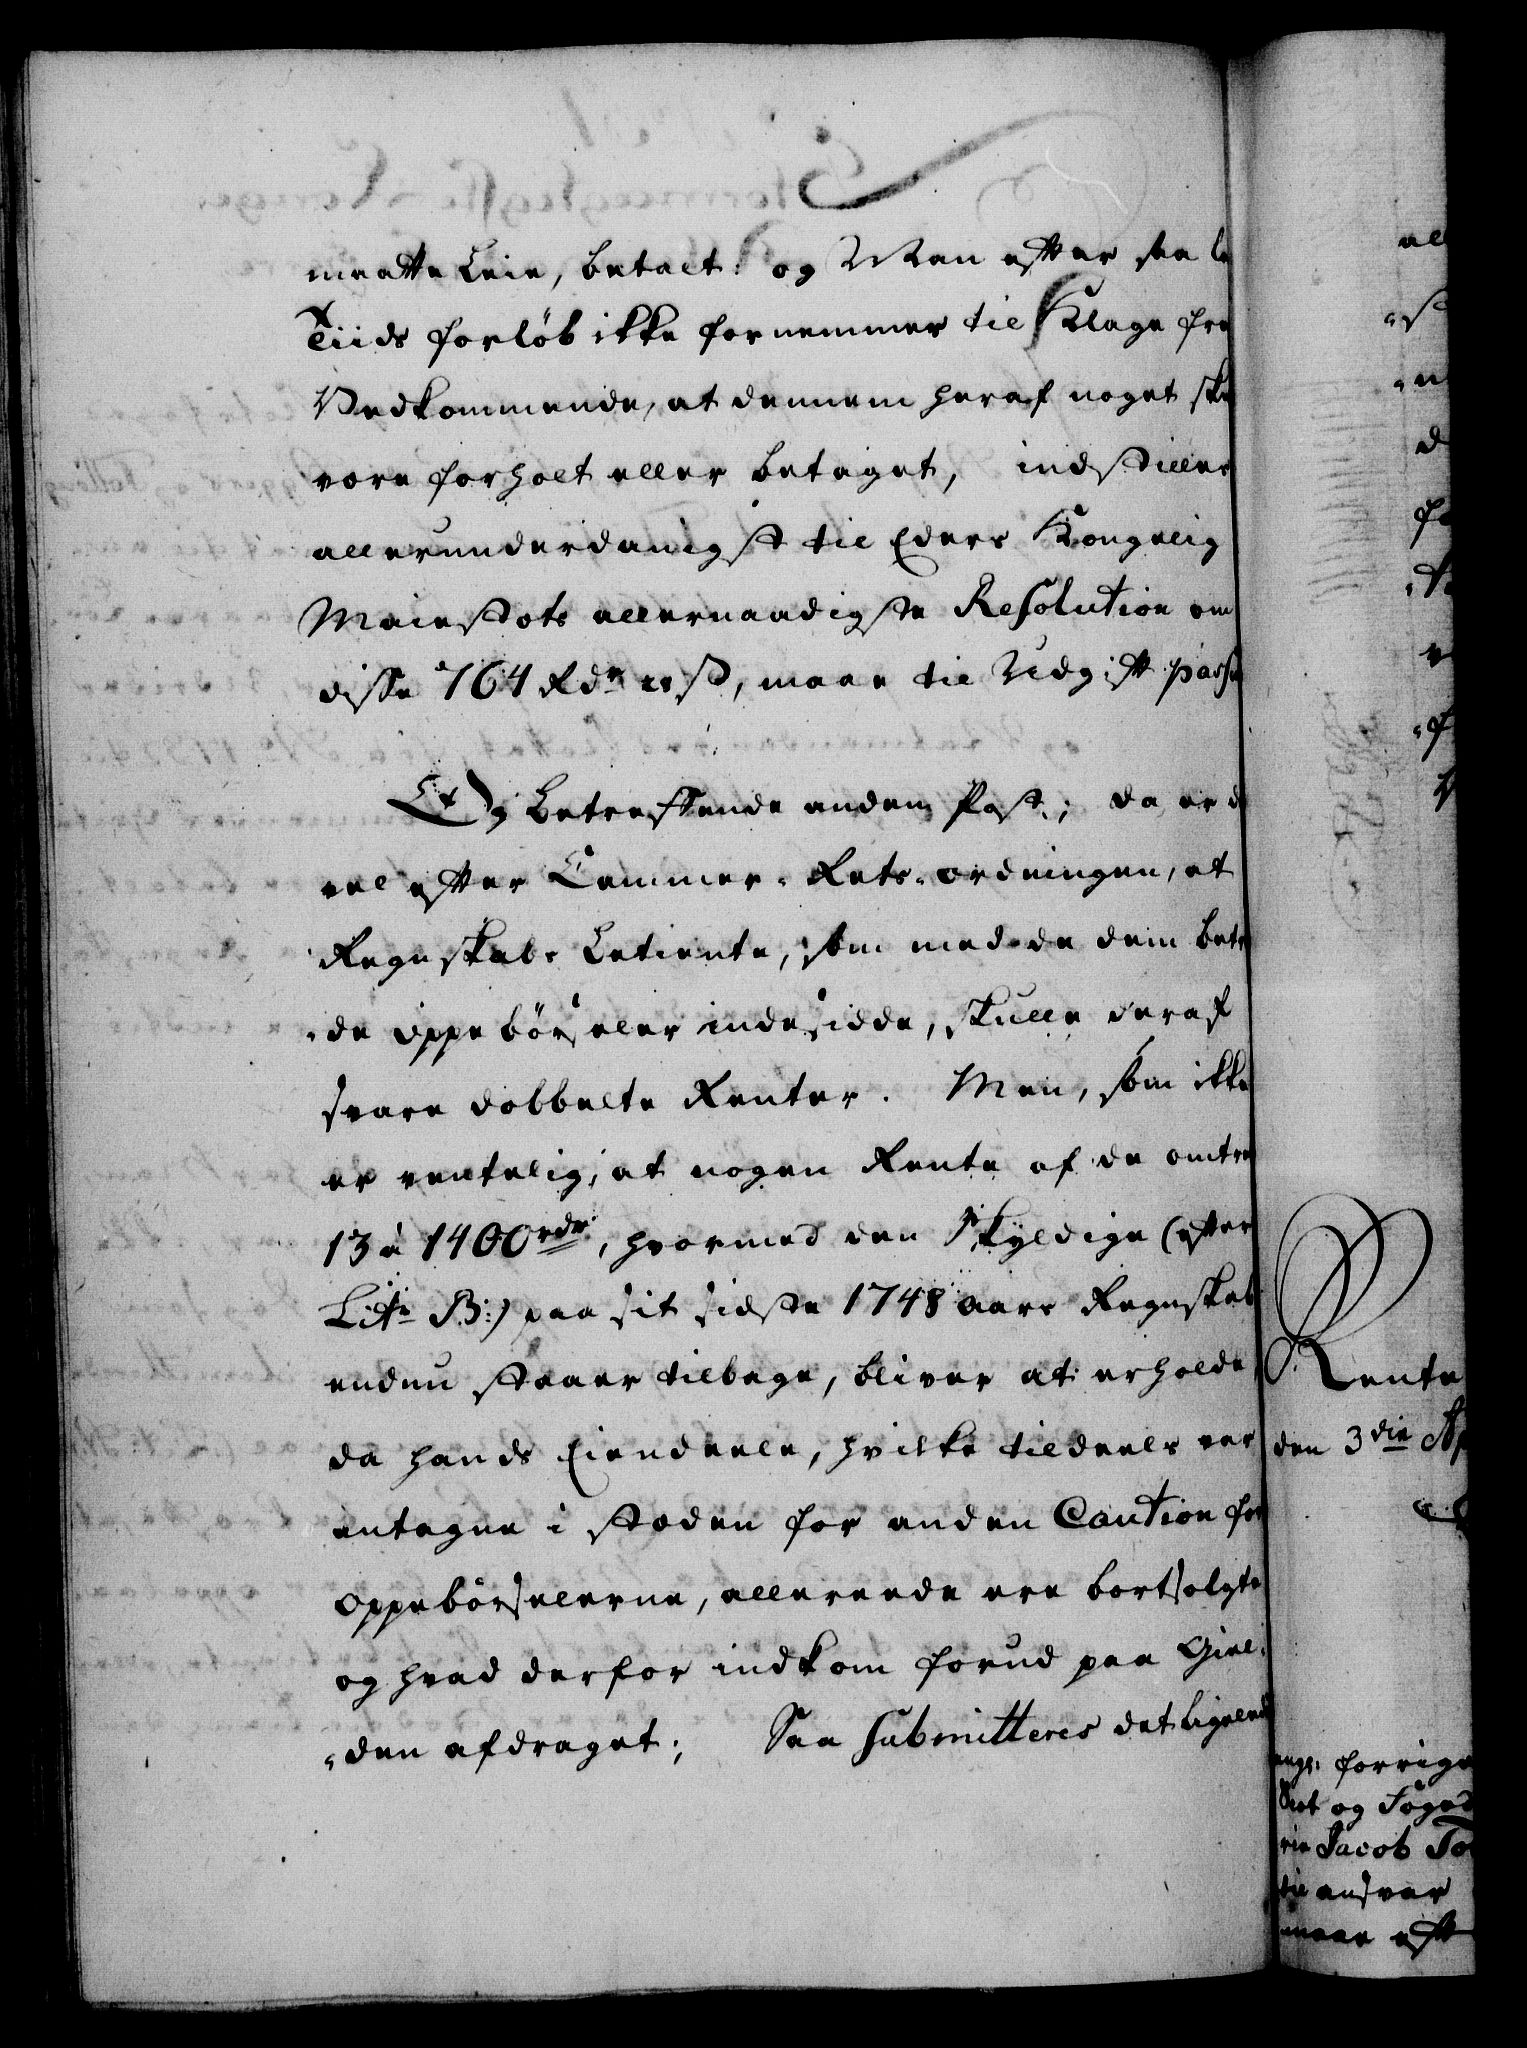 maatte Leie, betalt: og Man efter saa la
Tiids forløb ikke fornemmer til Klage fra
Vedkommende, at dennem heraf noget sku
være forholt eller betaget, indstilles
allerunderdanigst til Eders Kongelig
Maiestæts allernaadigste Resolution om
disse 164 Rdr 22 ß, maae til Udgift passe
Og betreffende anden Post; da er d
vel efter Cammer-Rets-ordningen, at
Regnskabs Betiente, som med de dem betr
de oppebørseler indesidde, skulle deraf
svare dobbelte Renter. Men, som ikke
er ventelig, at nogen Rente af de omtre
13 à 1400 rdr, hvormed den Skyldige (efter
Litr B:) paa sit sidste 1748 aars Regnskab
endnu staaer tilbage, bliver at erholde,
da hands Eiendeele, hvilke tildeels var
antagne i stæden for anden Caution for
oppebørselerne, allereede ere bortsolgte
og hvad derfor indkom forud paa Giel-
-den afdraget; Saa submitteres det ligeled
all
d
Rente
den 3die Ap
forrige
og Foged
Jacob To
til ansvar
maae eft